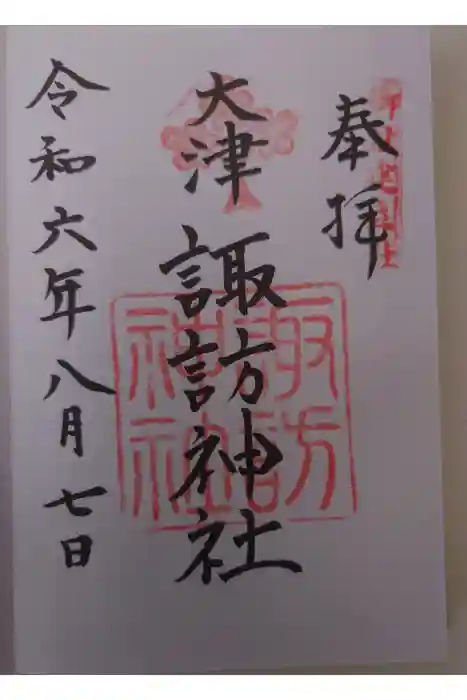 奉拝
大津
諏訪神社
諏訪
神社
令和六年八月七日